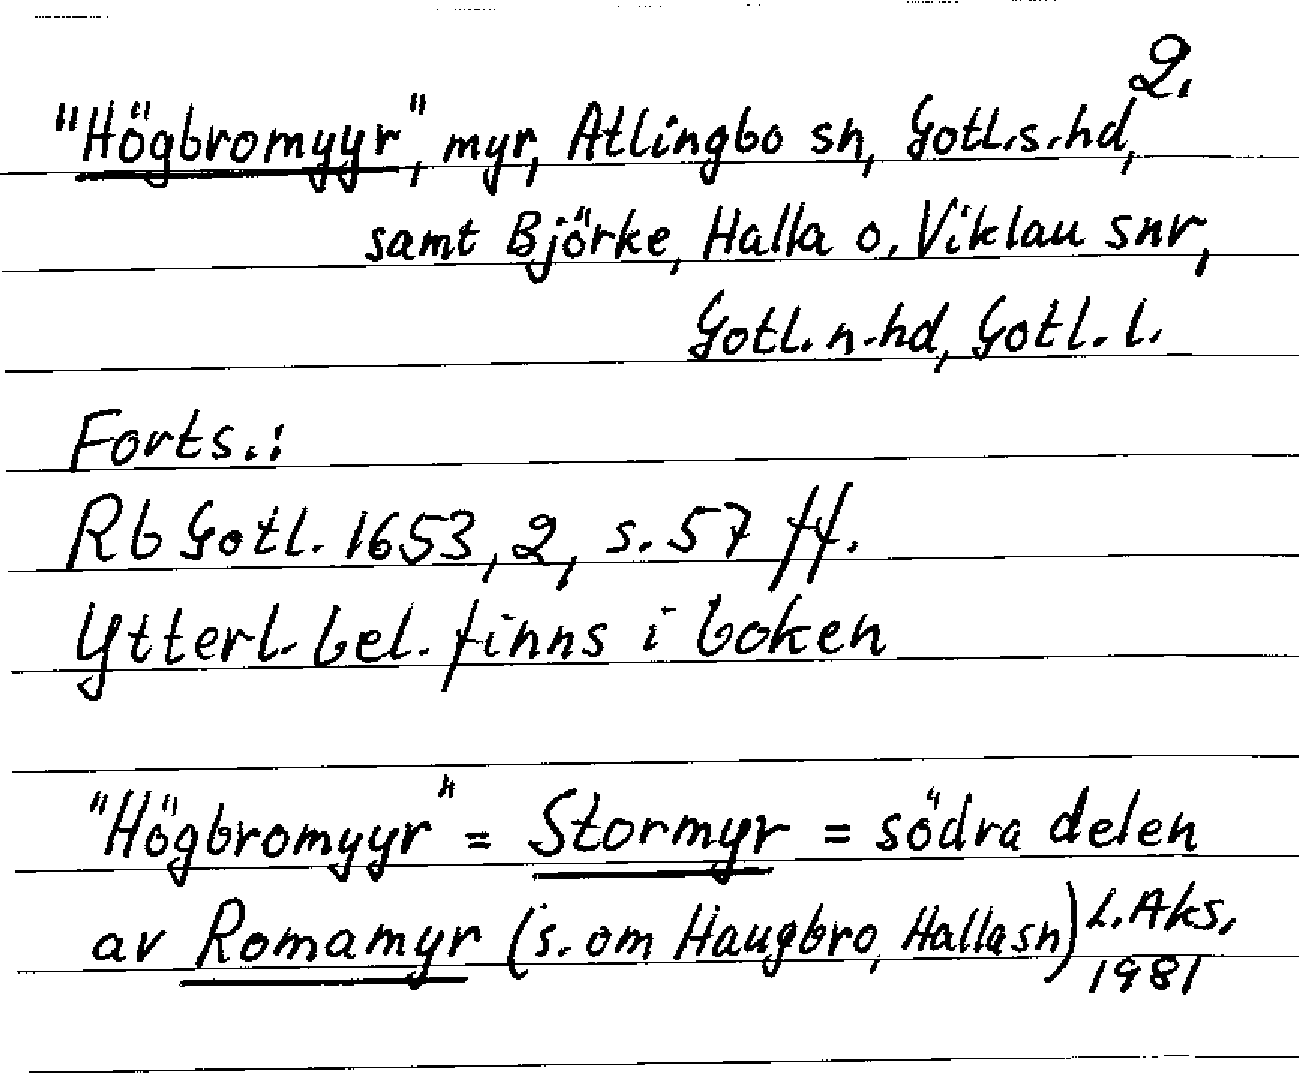 2.
"Högbromyyr", myr, Atlingbo sn, Gotl.s.hd,
samt Björke, Halla o. Viklau snr,
Gotl. n. hd, Gotl. l.
Forts.:
Rb Gotl. 1653, 2, s. 57 ff.
Ytterl. bel. finns i boken
"Högbromyyr" = Stormyr = södra delen
av Romamyr (s. om Haugbro, Halla sn) L. Aks.
1981